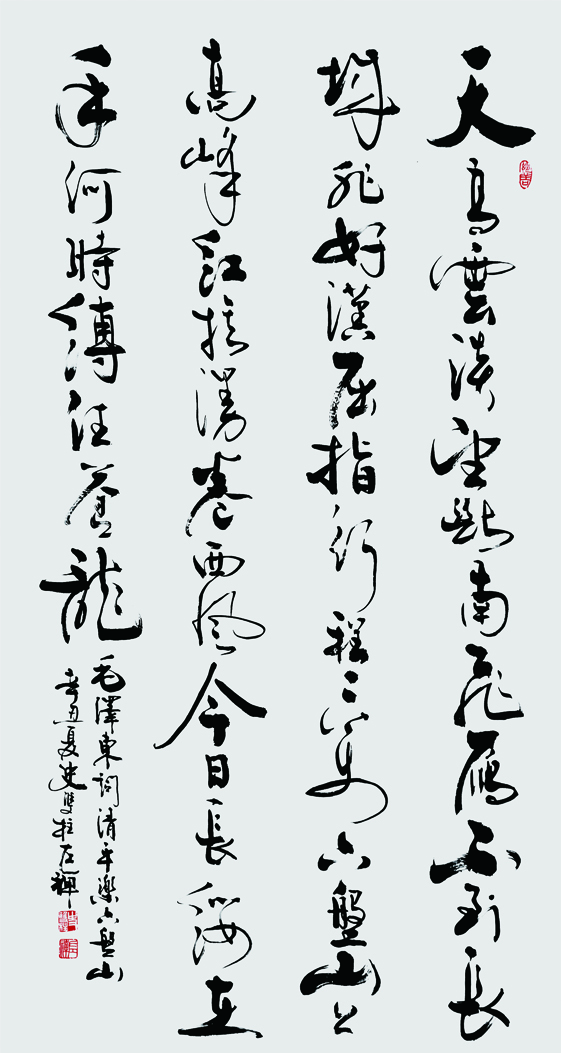 天高雲淡望斷南飛雁不到長
城非好漢屈指行程二萬六盤山上
高峰紅旗漫卷西風今日長纓在
手何時縛住蒼龍
毛澤東詞清平樂六盤山
辛丑夏史雙柱